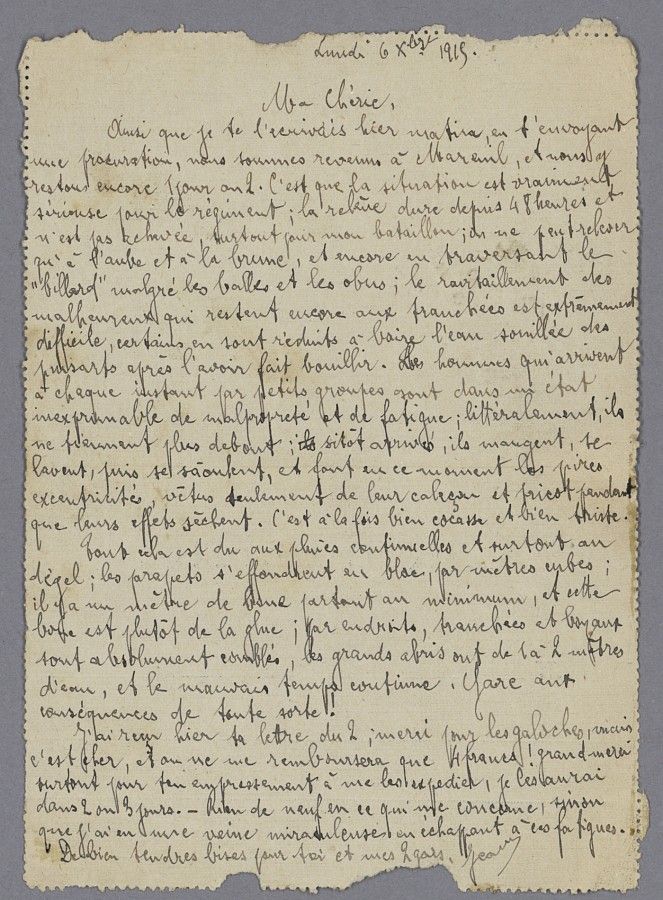 Lundi 6 Xbre 1915.
Ma Chérie,
Ainsi que je te l'écrivais hier matin, en t'envoyant
une procuration, nous sommes revenus à Mareuil, et nous y
restons encore 1 jour ou 2. C'est que la situation est vraiment
sérieuse pour le régiment ; la relève dure depuis 48 heures et
n'est pas achevée, surtout pour mon bataillon ; on ne peut relever
qu'à l'aube et à la brune, et encore en traversant le
"billard" malgré les balles et les obus ; le ravitaillement des
malheureux qui restent encore aux tranchées est extrêmement
difficile, certains en sont réduits à boire l'eau souillée des
puisarts après l'avoir fait bouillir. Les hommes qui arrivent
à chaque instant par petits groupes sont dans un état
inexprimable de malpropreté et de fatigue ; littéralement, ils
ne tiennent plus debout ; sitôt arrivés, ils mangent, se
lavent, puis se saoulent, et font en ce moment les pires
excentricités, vêtus seulement de leur caleçon et tricot pendant
que leurs effets sèchent. C'est à la fois bien cocasse et bien triste.
Tout cela est du aux pluies continuelles et surtout au
dégel ; les parapets s'effondrent en bloc, par mètres cubes ;
il y a un mètre de boue partout au minimum, et cette
boue est plutôt de la glue ; par endroits, tranchées et boyaux
sont absolument comblés, les grands abris ont de 1 à 2 mètres
d'eau, et le mauvais temps continue. Gare aux
conséquences de toute sorte !
J'ai reçu hier ta lettre du 2 ; merci pour les galoches, mais
c'est cher, et on ne me remboursera que 4 francs ! grand merci
surtout pour ton empressement à me les expédier, je les aurai
dans 2 ou 3 jours. – Rien de neuf en ce qui me concerne, sinon
que j'ai eu une veine miraculeuse en échappant à ces fatigues.
De bien tendres bises pour toi et mes 2 gars. Jean